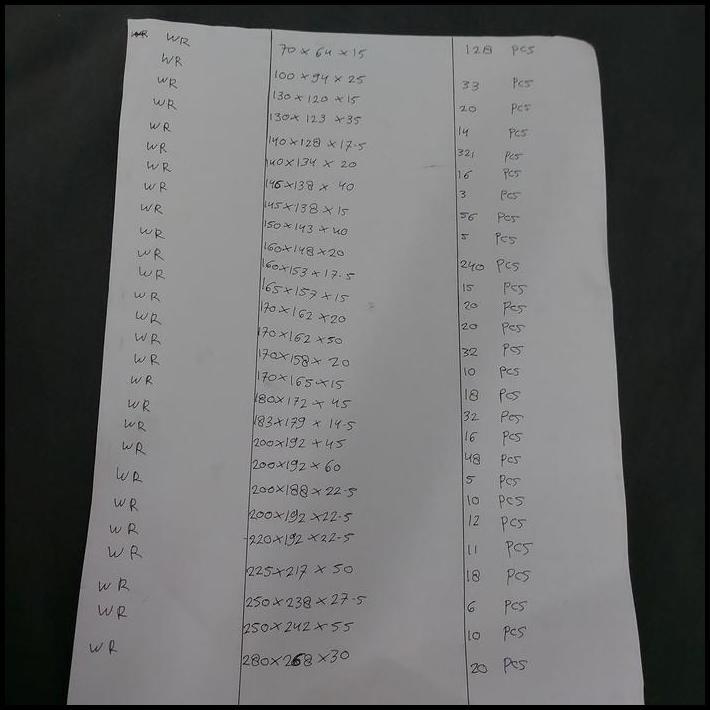 WR WR 70 x 64 x 15 128 PCS
WR 100 x 94 x 25 33 PCS
WR 130 x 120 x 15 20 PCS
WR 130 x 123 x 35 14 PCS
WR 140 x 128 x 17.5 321 PCS
WR 140 x 134 x 20 16 PCS
WR 145 x 138 x 40 3 PCS
WR 145 x 138 x 15 56 PCS
WR 150 x 143 x 40 5 PCS
WR 160 x 148 x 20 240 PCS
WR 160 x 153 x 17.5 15 PCS
WR 165 x 157 x 15 20 PCS
WR 170 x 162 x 20 20 PCS
WR 170 x 162 x 50 32 PCS
WR 170 x 158 x 20 10 PCS
WR 170 x 165 x 15 18 PCS
WR 180 x 172 x 45 32 PCS
WR 183 x 179 x 14.5 16 PCS
WR 200 x 192 x 45 48 PCS
WR 200 x 192 x 60 5 PCS
WR 200 x 188 x 22.5 10 PCS
WR 200 x 192 x 22.5 12 PCS
WR 220 x 192 x 22.5 11 PCS
WR 225 x 217 x 50 18 PCS
WR 250 x 238 x 27.5 6 PCS
WR 250 x 242 x 55 10 PCS
WR 280 x 268 x 30 20 PCS